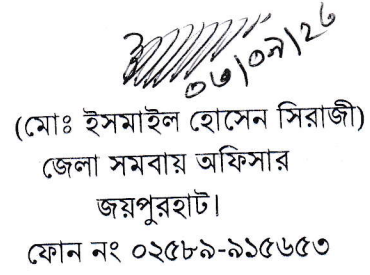 (মোঃ ইসমাইল হোসেন সিরাজী)
জেলা সমবায় অফিসার
জয়পুরহাট।
ফোন নং ০২৫৮৯-৯১৫৬৫৩